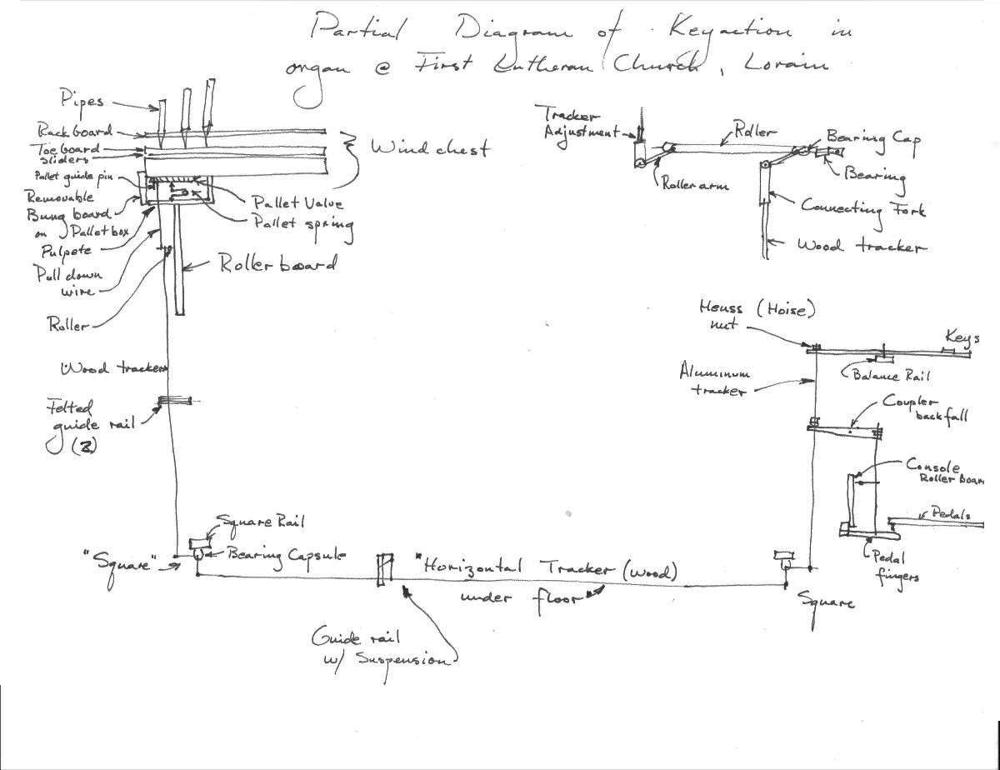 Partial Diagram of Keyaction in
organ @ First Lutheran Church, Lorain
Pipes
Rackboard
Toeboard
Sliders
Pallet guide pin
Removable
Bung board
on Pallet box
Pulpete
Pull down
wire
Roller
Windchest
Pallet Valve
Pallet spring
Rollerboard
Wood tracker
Felted
guide rail
(2)
Tracker
Adjustment
Roller
Bearing Cap
Bearing
Roller arm
Connecting Fork
Wood tracker
Heuss (Hoise)
nut
Keys
Balance Rail
Aluminum
tracker
Coupler
backfall
Console
Roller Boar
Pedals
Pedal
fingers
Square Rail
Bearing Capsule
"Square"
"Horizontal Tracker (wood)
under floor"
Square
Guide rail
w/ Suspension